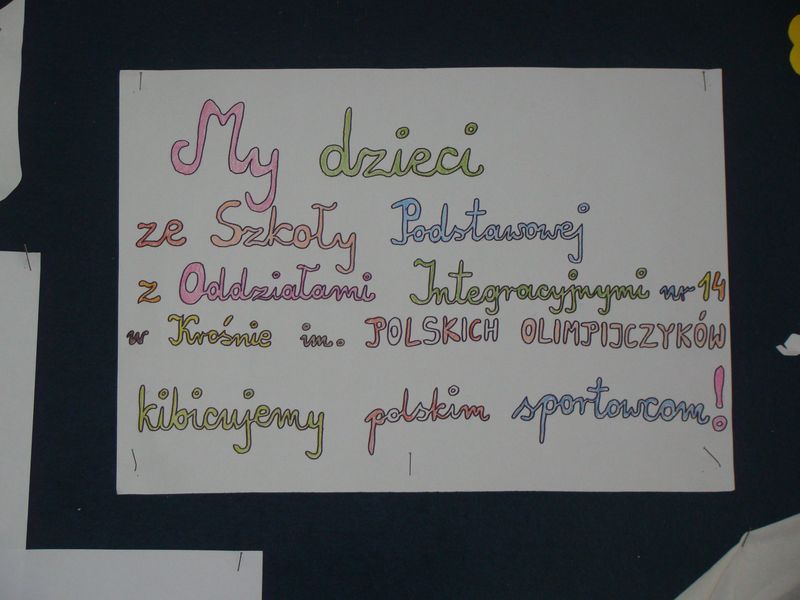 My dzieci
ze Szkoły Podstawowej
z Oddziałami Integracyjnymi nr 14
w Krośnie im. POLSKICH OLIMPIJCZYKÓW
kibicujemy polskim sportowcom!